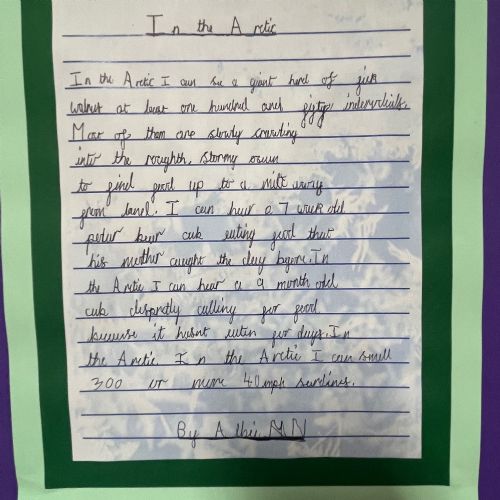 In the Arctic
In the Arctic I can see a giant herd of
walrus at least one hundred and indervidials.
Most of them are slowly crawling
into the roughth, stormy
to find food up to a mile away
from land. I can hear a 7 week old
poler bear cub eating food that
his mother caught the day before. In
the Arctic I can hear a 9 month old
cub despretly calling for food
because it hasnt eaten for days. In
the Arctic. In the Arctic I can smell
300 or more 40mph sardines.
By Albie MN